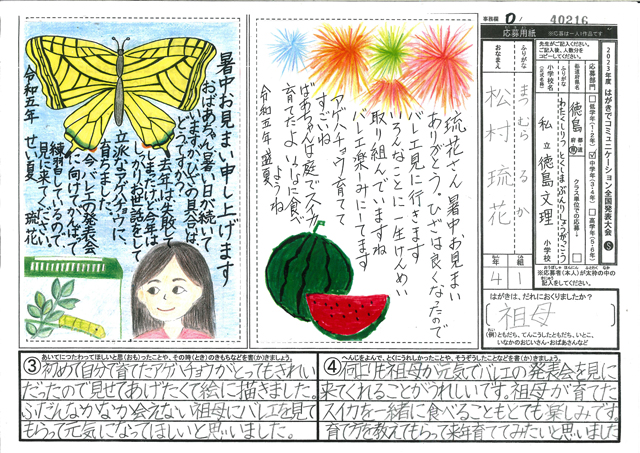 暑中お見まい申し上げます
おばあちゃん、暑い日が続いて
いますがひざの具合は
どうですか？
去年は失敗して
しまったけど今年は
しっかりお世話をして
立派なアゲハチョウに
育ちました。
今、バレエの発表会
に向けてがんばって
練習しているので、
見に来てください。
令和五年 せい夏 琉花
琉花さん 暑中お見まい
ありがとう。ひざは良くなったので
バレエ見に行きます。
いろんなことに一生けんめい
取り組んでいますね
バレエ楽しみにしてます
アゲハチョウ育てて
すごいね
ばあちゃんは庭でスイカ
育てたよ いっしょに食べ
ようね
令和五年盛夏
事務局 D/ 40216
応募用紙
※応募は一人1作品です
先生がご記入ください。
ご記入後、人数分を
コピーしてください。
2023年度 はがきでコミュニケーション全国発表大会 S
応募部門
低学年(1・2年)
中学年(3・4年)
高学年(5・6年)
クラス単位での応募
都道府県名
徳島
都道府県
ふりがな
わたくしりつ とくしまぶんりしょうがっこう
小学校名
(正式名称)
私立 徳島文理 小学校
ふりがな
まつむら るか
おなまえ
松村 琉花
年 組
4 1
※応募者(本人)が太枠の中の
記入をしてください。
はがきは、だれにおくりましたか？
祖母
(例)ともだち、てんこうしたともだち、いとこ、
いなかのおじいさん・おばあさんなど
③ あいてにつたわってほしいと思(おも)ったことや、その時(とき)のきもちなどを書(か)きましょう。
初めて自分で育てたアゲハチョウがとってもきれい
だったので見せてあげたくて絵に描きました。
ふだんなかなか会えない祖母にバレエを見て
もらって元気になってほしいと思いました。
④ へんじをよんで、とくにうれしかったことや、そうぞうしたことなどを書(か)きましょう。
何よりも祖母が元気でバレエの発表会を見に
来てくれることがうれしいです。祖母が育てた
スイカを一緒に食べることもとても楽しみです。
育て方を教えてもらって来年育ててみたいと思いました